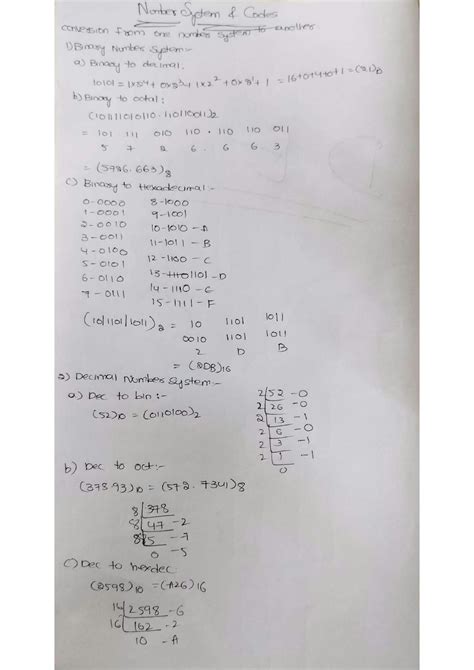 Number System & Codes
conversion from one number system to another
1) Binary Number System:-
a) Binary to decimal:
10101 = 1x2^4 + 0x2^3 + 1x2^2 + 0x2^1 + 1 = 16+0+4+0+1 = (21)D
b) Binary to octal:
(101111010110.110110011)2
= 101 111 010 110 . 110 110 011
5 7 2 6 . 6 6 3
= (5726.663)8
c) Binary to Hexadecimal:-
0-0000 8-1000
1-0001 9-1001
2-0010 10-1010 - A
3-0011 11-1011 - B
4-0100 12-1100 - C
5-0101 13-1101 - D
6-0110 14-1110 - C
7-0111 15-1111 - F
(10/1101/1011)2 = 10 1101 1011
0010 1101 1011
2 D B
= (2DB)16
2) Decimal Number System:-
a) Dec to bin:-
(52)10 = (0110100)2
2 52 - 0
2 26 - 0
2 13 - 1
2 6 - 0
2 3 - 1
2 1 - 1
0
b) Dec to oct:-
(378.93)10 = (572.7341)8
8 378
8 47 - 2
8 5 - 7
0 - 5
c) Dec to hexdec:
(2598)10 = (A26)16
16 2598 - 6
16 162 - 2
10 - A